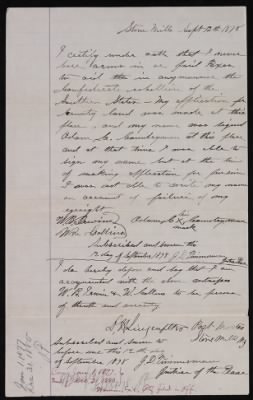 Stone Mills Sept 12th 1878
I certify under oath that I never
bore arms in or
to aid the in any manner the
Confederate rebellion of the
Southern States – My application for
bounty land was made at this
place, and my name was signed
Adam C. at this place
and at that time I was able to
sign my name but at the time
of making application for pension
I was not able to write my name
on account of failure of my
eyesight
W. R. Erwin Adam C. his X mark
Wm Collins
Subscribed and sworn the
12 day of September 1878 J. D. Zimmerman
I do hereby depose and say that I am
acquainted with the above
W. R. Erwin & Wm Collins to be persons
of truth and veracity
Post Master
Stone Mills NY
Subscribed and sworn to
before me this 12th day
of September 1878 J. D. Zimmerman
Justice of the Peace